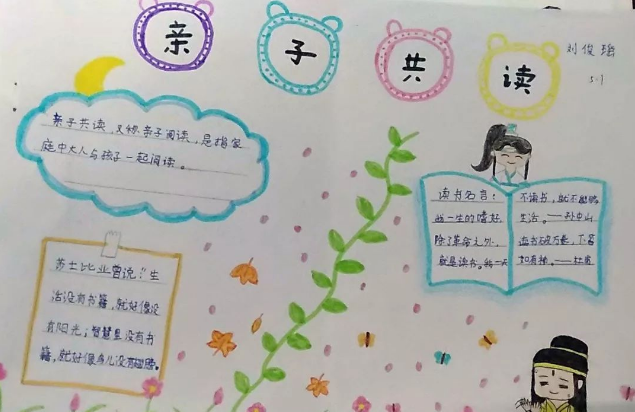 亲子共读
刘俊瑶
5·1
亲子共读,又称亲子阅读,是指家
庭中大人与孩子一起阅读。
莎士比亚曾说:“生
活没有书籍,就好像没
有阳光;智慧里没有书
籍,就好像鸟儿没有翅膀。
读书名言:
我一生的嗜好,
除了革命之外,
就是读书。我一天
不读书,就不能够
生活。——孙中山
读书破万卷,下笔
如有神。——杜甫